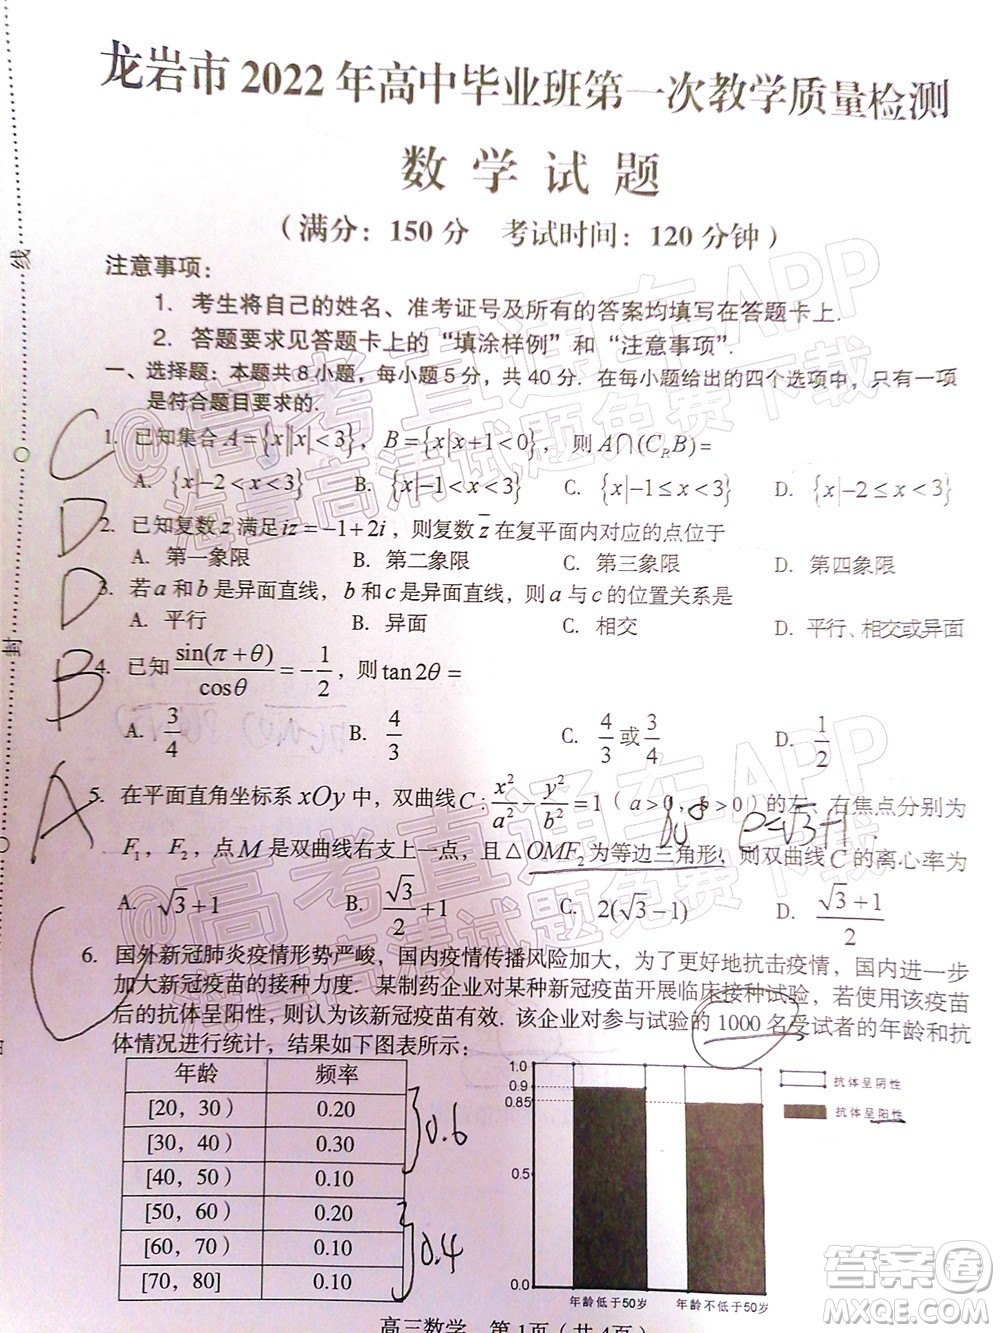 龙岩市 2022 年高中毕业班第一次教学质量检测
数 学 试 题
（满分：150 分  考试时间：120 分钟）
注意事项：
1. 考生将自己的姓名、准考证号及所有的答案均填写在答题卡上.
2. 答题要求见答题卡上的“填涂样例”和“注意事项”.
一、选择题：本题共 8 小题，每小题 5 分，共 40 分．在每小题给出的四个选项中，只有一项
是符合题目要求的.
C
1. 已知集合 A={x||x|<3}，B={x|x+1<0}， 则 A∩(C_R B)=
A. {x|-2<x<3}  B. {x|-1<x<3}  C. {x|-1≤x<3}  D. {x|-2≤x<3}
D
2. 已知复数 z 满足 iz=-1+2i，则复数 z̄ 在复平面内对应的点位于
A. 第一象限  B. 第二象限  C. 第三象限  D. 第四象限
D
3. 若 a 和 b 是异面直线， b 和 c 是异面直线，则 a 与 c 的位置关系是
A. 平行  B. 异面  C. 相交  D. 平行、相交或异面
B
4. 已知 sin(π+θ)/cosθ = -1/2，则 tan2θ =
A. 3/4  B. 4/3  C. 4/3 或 3/4  D. 1/2
A
5. 在平面直角坐标系 xOy 中，双曲线 C: x²/a² - y²/b² = 1（a>0，b>0）的左、右焦点分别为
e=√3+1
F₁，F₂，点 M 是双曲线右支上一点，且△OMF₂ 为等边三角形，则双曲线 C 的离心率为
A. √3+1  B. √3/2+1  C. 2(√3-1)  D. (√3+1)/2
C
6. 国外新冠肺炎疫情形势严峻，国内疫情传播风险加大，为了更好地抗击疫情，国内进一步
加大新冠疫苗的接种力度．某制药企业对某种新冠疫苗开展临床接种试验，若使用该疫苗
后的抗体呈阳性，则认为该新冠疫苗有效．该企业对参与试验的 1000 名受试者的年龄和抗
体情况进行统计，结果如下图表所示：
年龄  频率
[20，30）  0.20
[30，40）  0.30
[40，50）  0.10
[50，60）  0.20
[60，70）  0.10
[70，80]  0.10
0.6
0.4
1.0
0.9
0.85
0.5
0.0
年龄低于50岁  年龄不低于50岁
抗体呈阴性
抗体呈阳性
高三数学  第 1 页（共 4 页）
线
封
@高考直通车APP
海量高清试题免费下载
@高考直通车APP
海量高清试题免费下载
答案圈
MXQE.COM